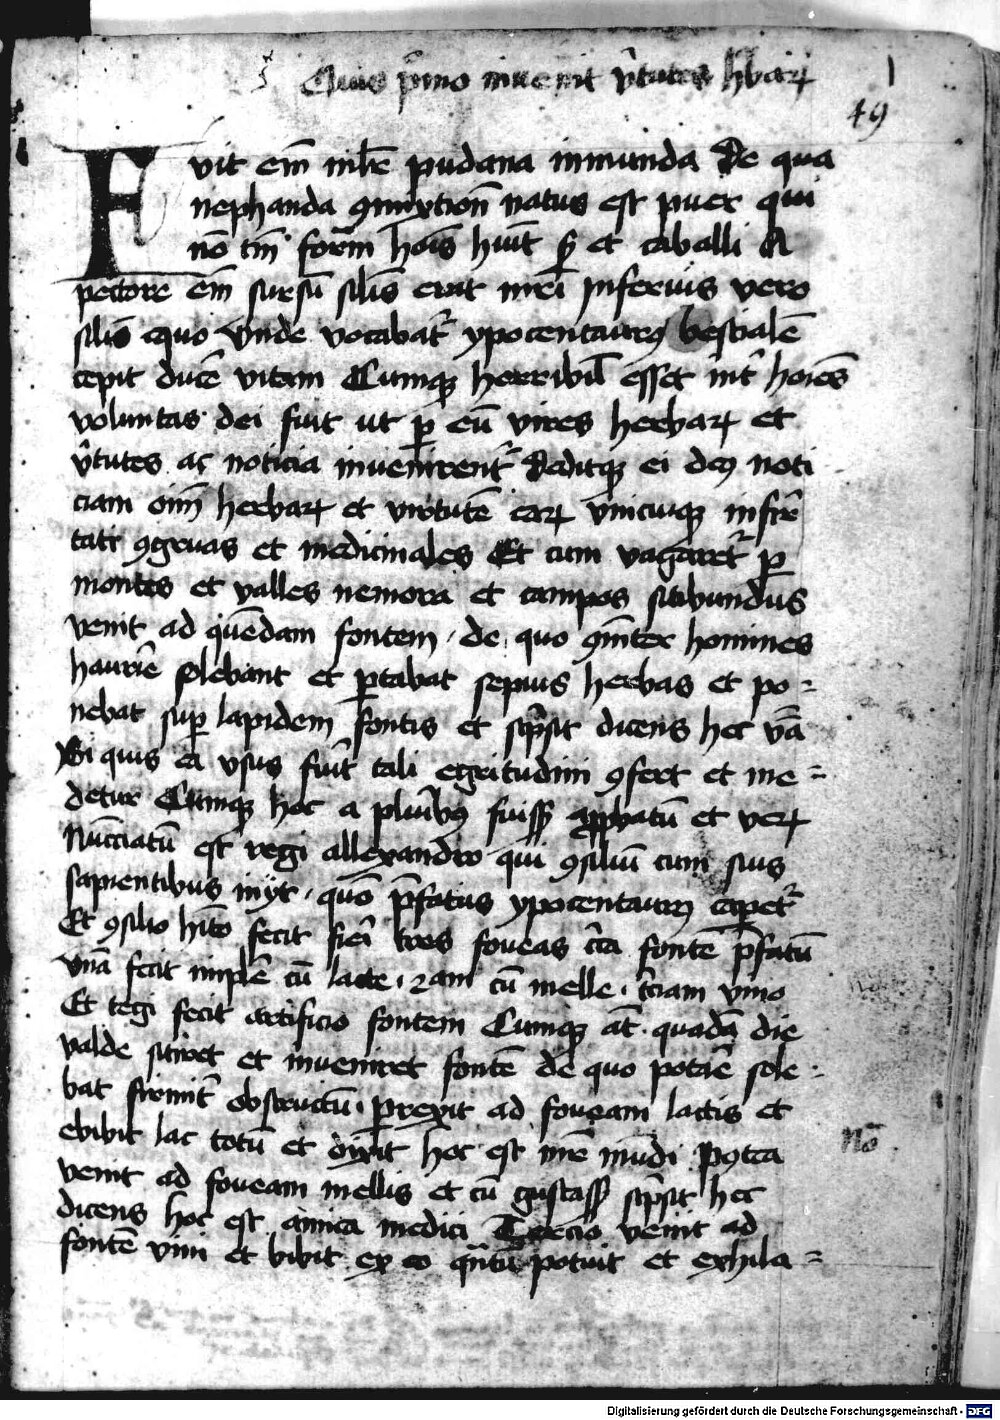 Quis p̄mo inuenit v̄tutes h̄baꝝ
1
49
Fvit em̄ mlr̄e pudana inmunda De qua
nephanda ꝯmixtion̄ natus est puer qui
nō tm̄ form̄ hoı̄s huı̄t ſꝫ et caballi A
pectore em̄ sursū silı̄s erat mr̄i Inferius vero
silı̄s equo vnde vocabat᷑ ypocentaurꝯ bestialē
cepit ducē vitam Cumqꝫ horribil̄ esset int᷑ hoı̄es
voluntas dei fuit ut ꝑ eū vires herbaꝝ et
v̄tutes ac noticia inuenirent᷑ Deditqꝫ ei deꝯ noti
ciam oı̄m herbaꝝ et virtutē eaꝝ vnicuiqꝫ infir̄
tati ꝯgruas et medicinales Et cum vagaret᷑ ꝑ
montes et valles nemora et campos sitibundus
venit ad quēdam fontem de quo ꝯit̄er homines
haurir̄e solebant et ꝑtabat sepius herbas et po=
nebat suꝑ lapidem fontis et sc̄psit dicens hec v̄ba
Si quis ea vsus fu̅it tali egritudini ꝯfert et me=
detur Cumqꝫ hoc a plurı̄bꝯ fuissꝫ aꝓbatū et veꝝ
Nūcciatū est regi allexandro qui ꝯsiliū cum suis
sapientibus inijt quō p̄fatus ypocentaurꝯ caperet᷑
Et ꝯsilio hı̄to fecit fieri tres foueas cı̄ca fontē p̄fatū
vnā fecit implē cū lacte 2am cū melle t̄ciam vino
Et tegi fecit artificio fontem Cumqꝫ at̄ quadā die
valde sitiret et inueniret fontē de quo potar̄e sole=
bat firmit᷑ obstructū ꝑrexit ad foueam lactis et
ebibit lac totū et dixit hoc est mr̄e mūdi Postea
venit ad foueam mellis et cū gustassꝫ sc̄psit hec
dicens hoc est amica medici Tercio venit ad
fontē vini et bibit ex eo quātū potuit et exhila=
nō
Digitalisierung gefördert durch die Deutsche Forschungsgemeinschaft - DFG